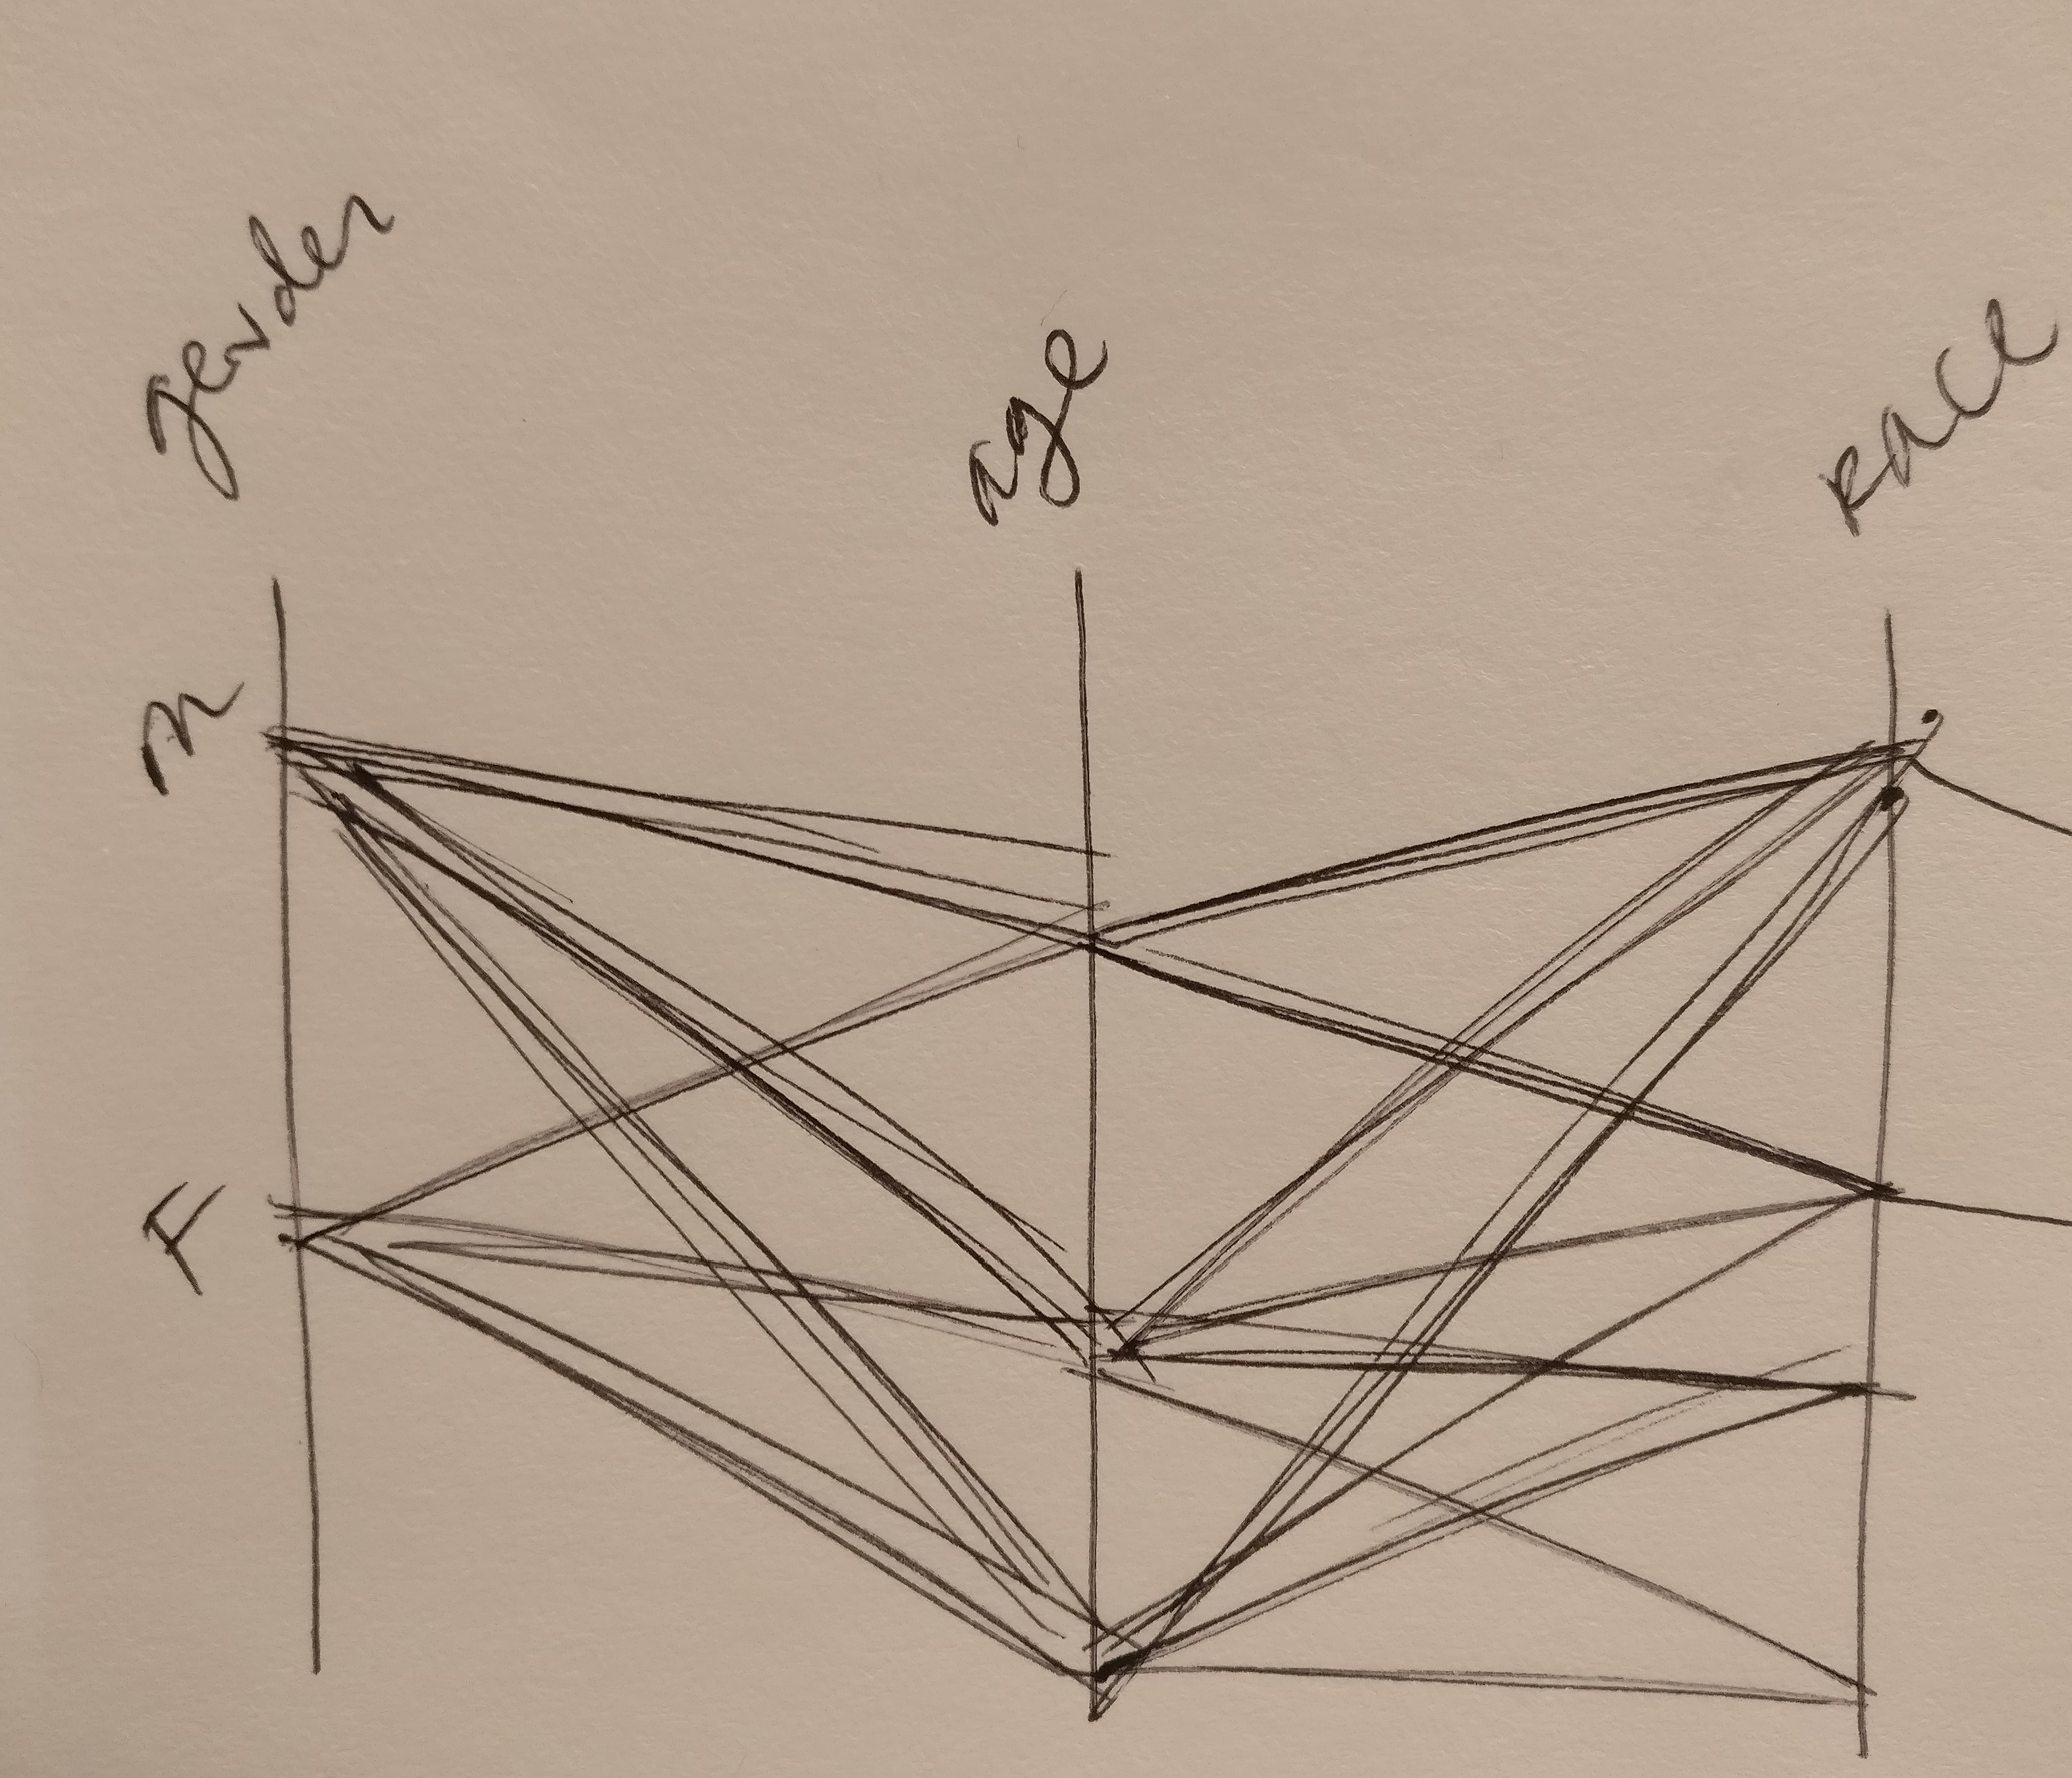 gender
age
RACE
M
F